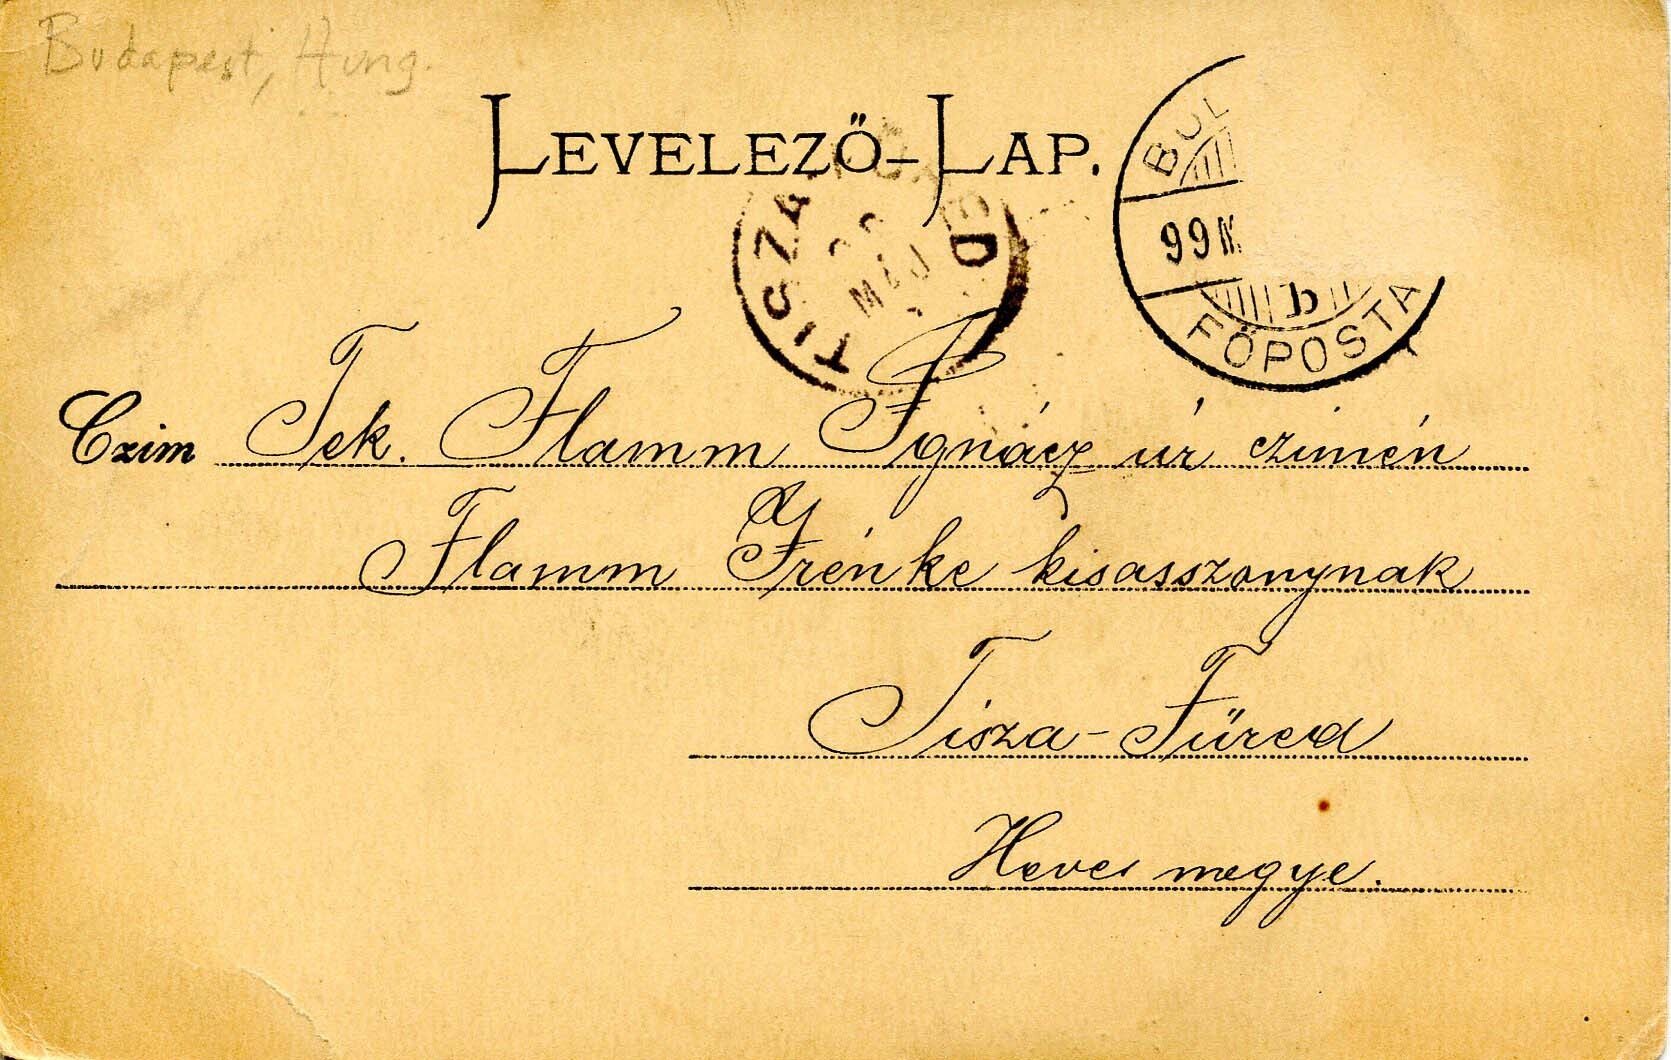 Budapest, Hung.
LEVELEZŐ-LAP.
BUD
99 IV.
b
FŐPOSTA
TISZA-FÜRED
99
MÁJ
Czim Tek. Flamm Ignácz úr czimén
Flamm Irénke kisasszonynak
Tisza-Füred
Heves megye.